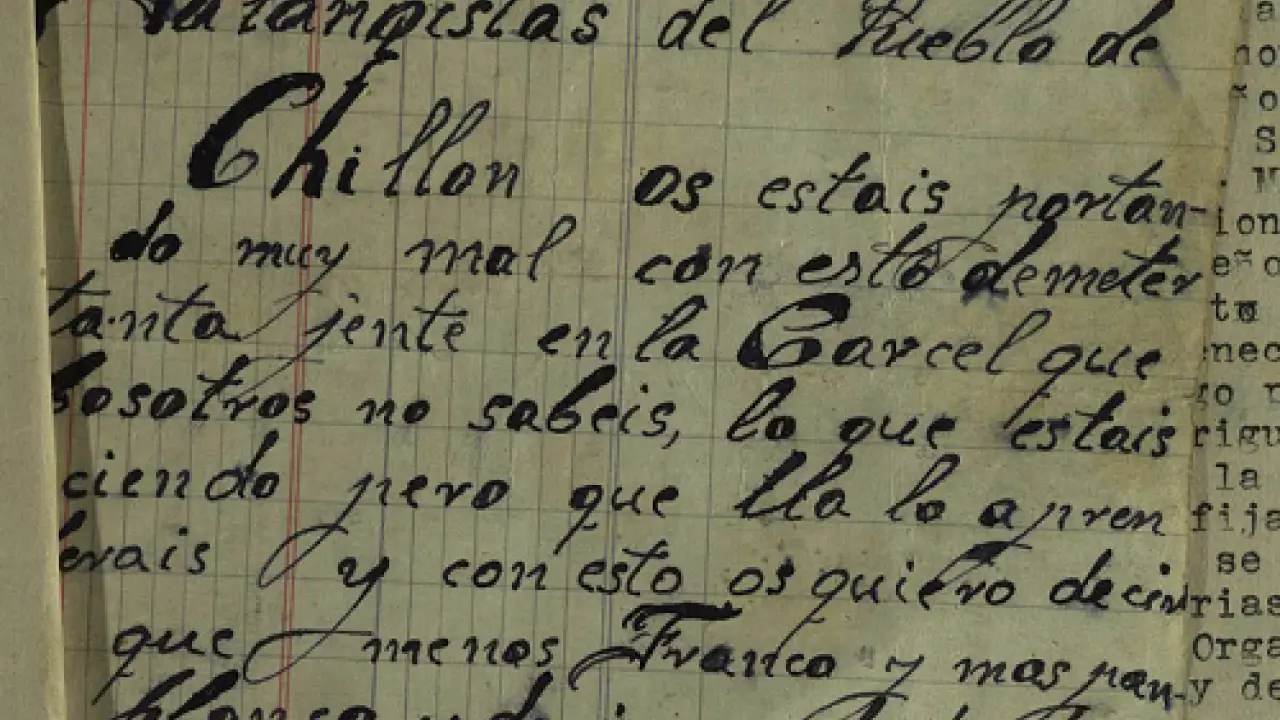 Falangistas del Pueblo de
Chillon os estais portan-
do muy mal con esto demeter
tanta jente en la Carcel que
bosotros no sabeis, lo que estais
ciendo pero que lla lo apren
derais y con esto os quiero decir
que menos Franco y mas pan-
Blanco
ion
eñ
te
nec
rigu
la
fija
se
rias
Orga
y de